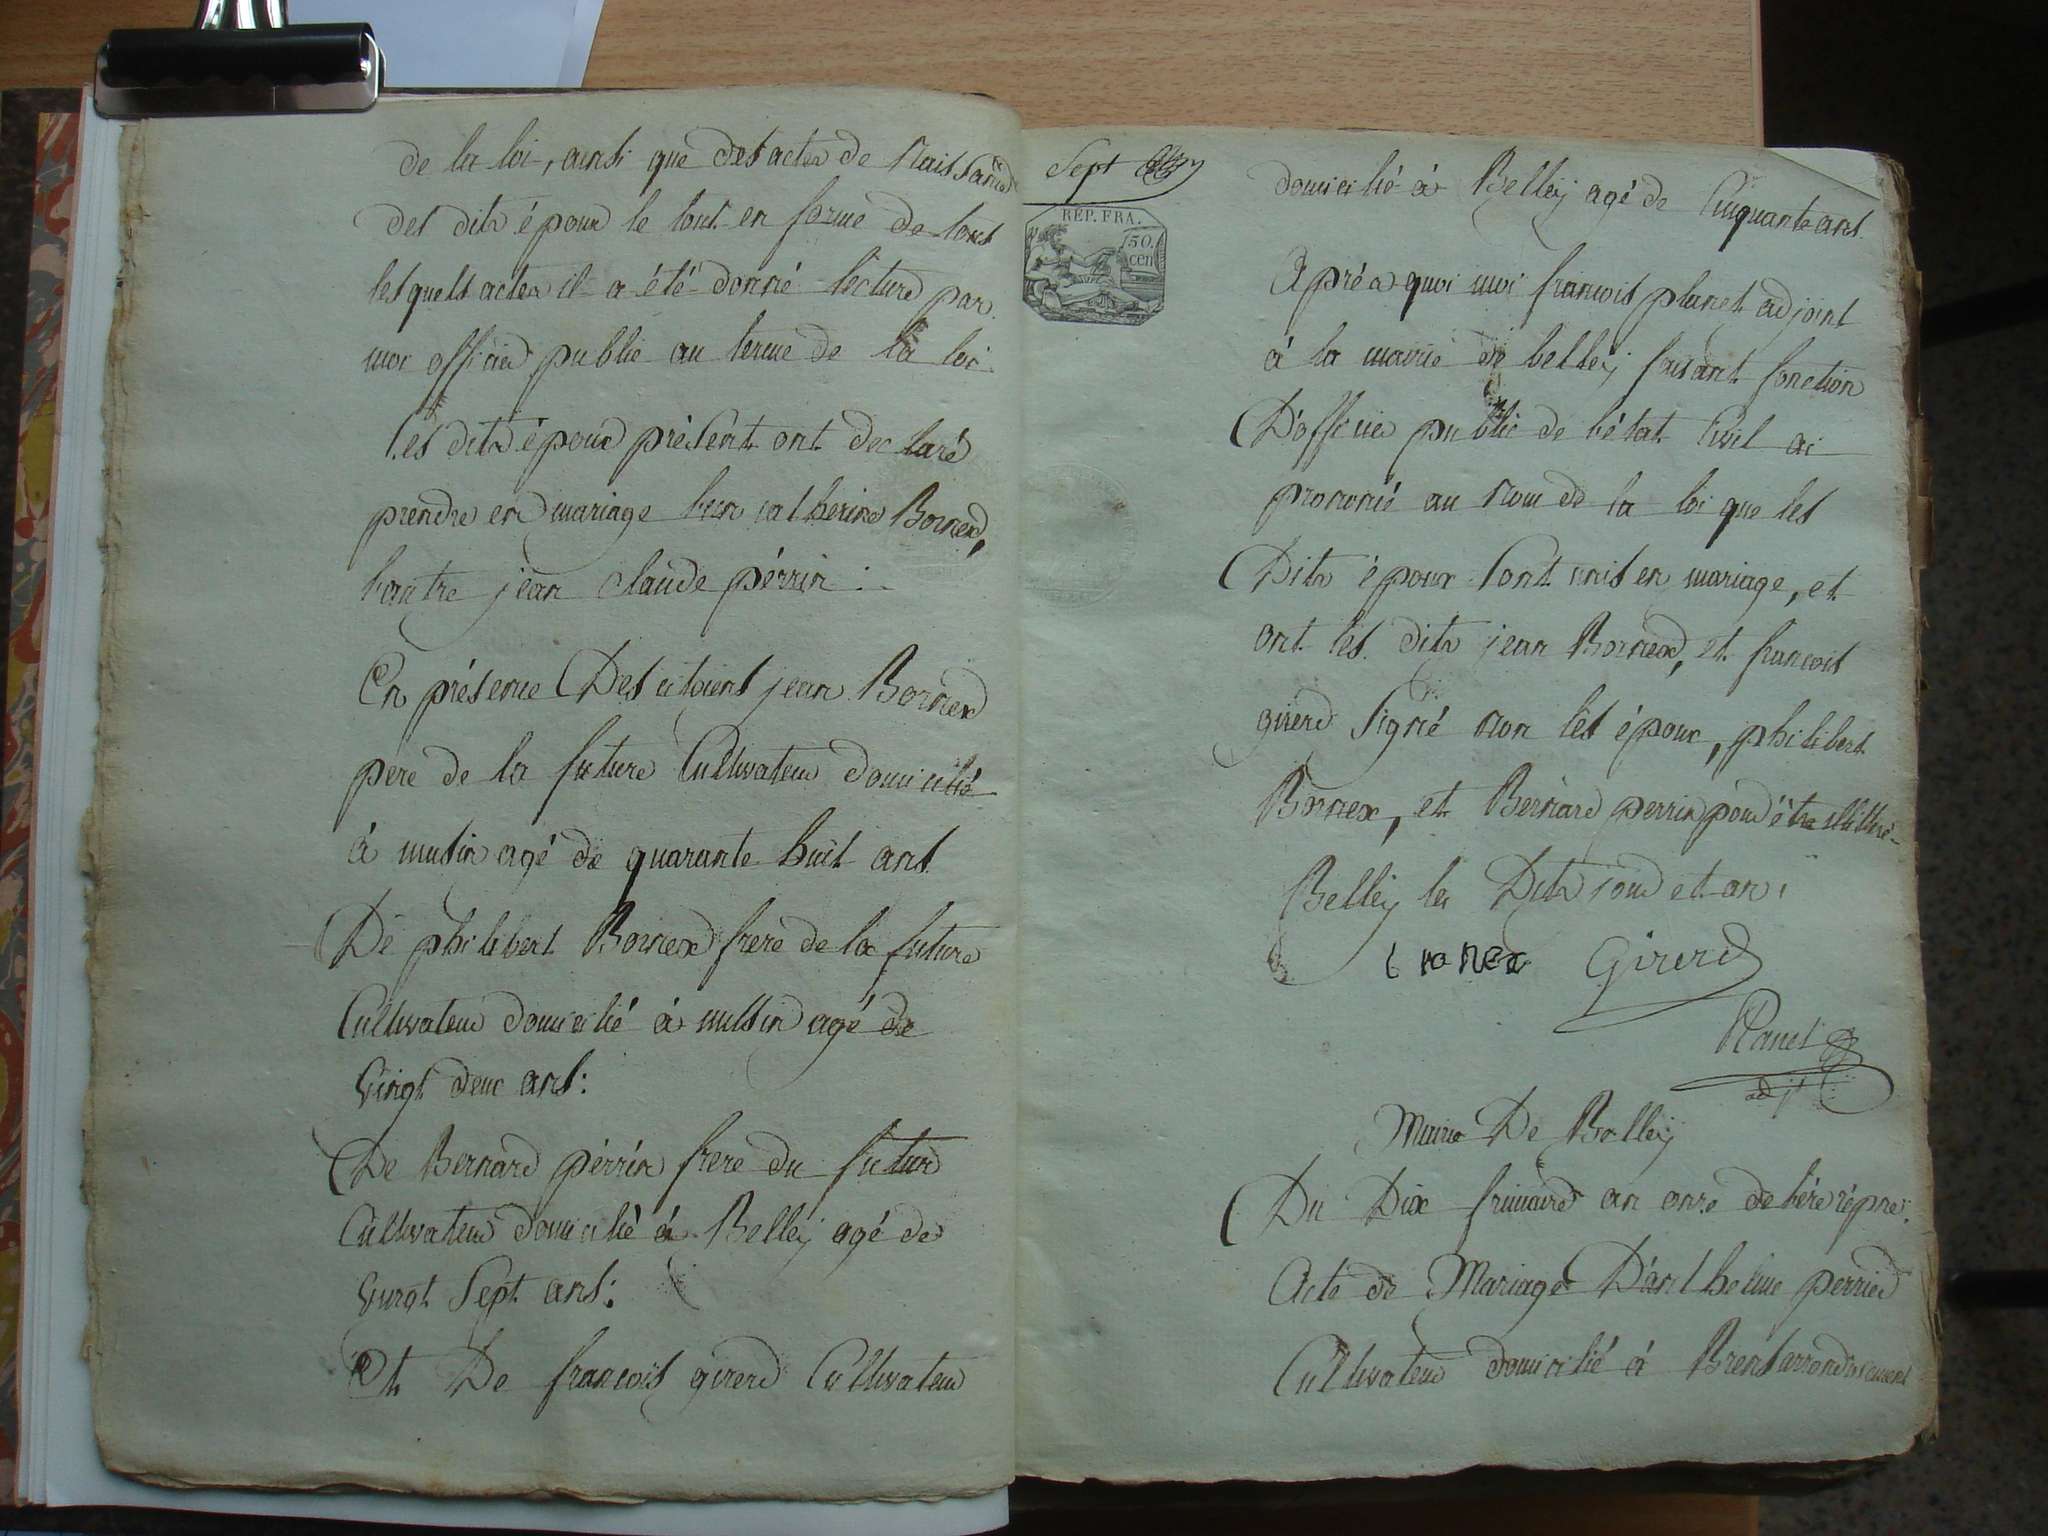 de la loi, ainsi que des actes de naissance
des dits époux le tout en forme de tous
lesquels actes il a été donné lecture par
moi officier public au terme de la loi
les dits époux présent ont déclaré
prendre en mariage l'un catherine Bornex,
l'autre jean claude pérrin :
En présence Des citoiens jean Bornex
pere de la future Cultivateur domicilié
à musin agé de quarante huit ans
De philibert Bornex frere de la future
Cultivateur domicilié à mussin agé de
vingt deux ans :
De Bernard pérrin frere du futur
Cultivateur domicilié à Belleÿ agé de
vingt Sept ans :
Et De francois girerd Cultivateur
Sept
REP. FRA.
50.
cen
domicilié à Belleÿ agé de Cinquante ans
Aprés quoi moi francois planet adjoint
à la mairie de belleÿ faisant fonction
D'officier public de l'état Civil ai
prononcé au nom de la loi que les
Dits époux sont unis en mariage, et
ont les dits jean Bornex, et francois
girerd signé non les époux, philibert
Bornex, et Bernard perrin pour être illitéré
Belleÿ les Dits jour et an :
Girerd
Planet
adjt
Mairie De Belleÿ
Du Dix frimaire an onze de l'ére répne.
Acte de Mariage D'anthelme perrier
Cultivateur domicilié à Brens arrondissement